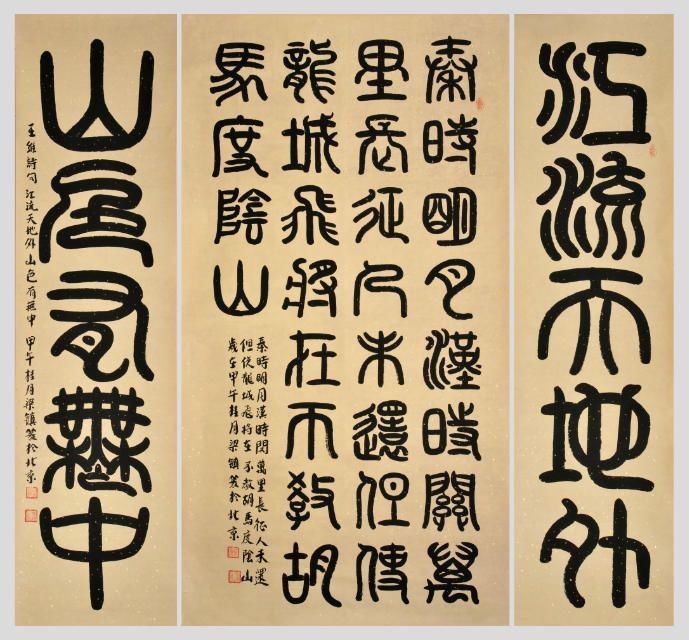 江流天地外
秦時明月漢時關萬
里長征人未還但使
龍城飛將在不教胡
馬度陰山
秦時明月漢時関 萬里長征人未還
但使龍城飛将在 不教胡馬度陰山
歲在甲午桂月梁鎮於北京
山色有無中
王維詩句 江流天地外 山色有無中 甲午桂月梁鎮於北京